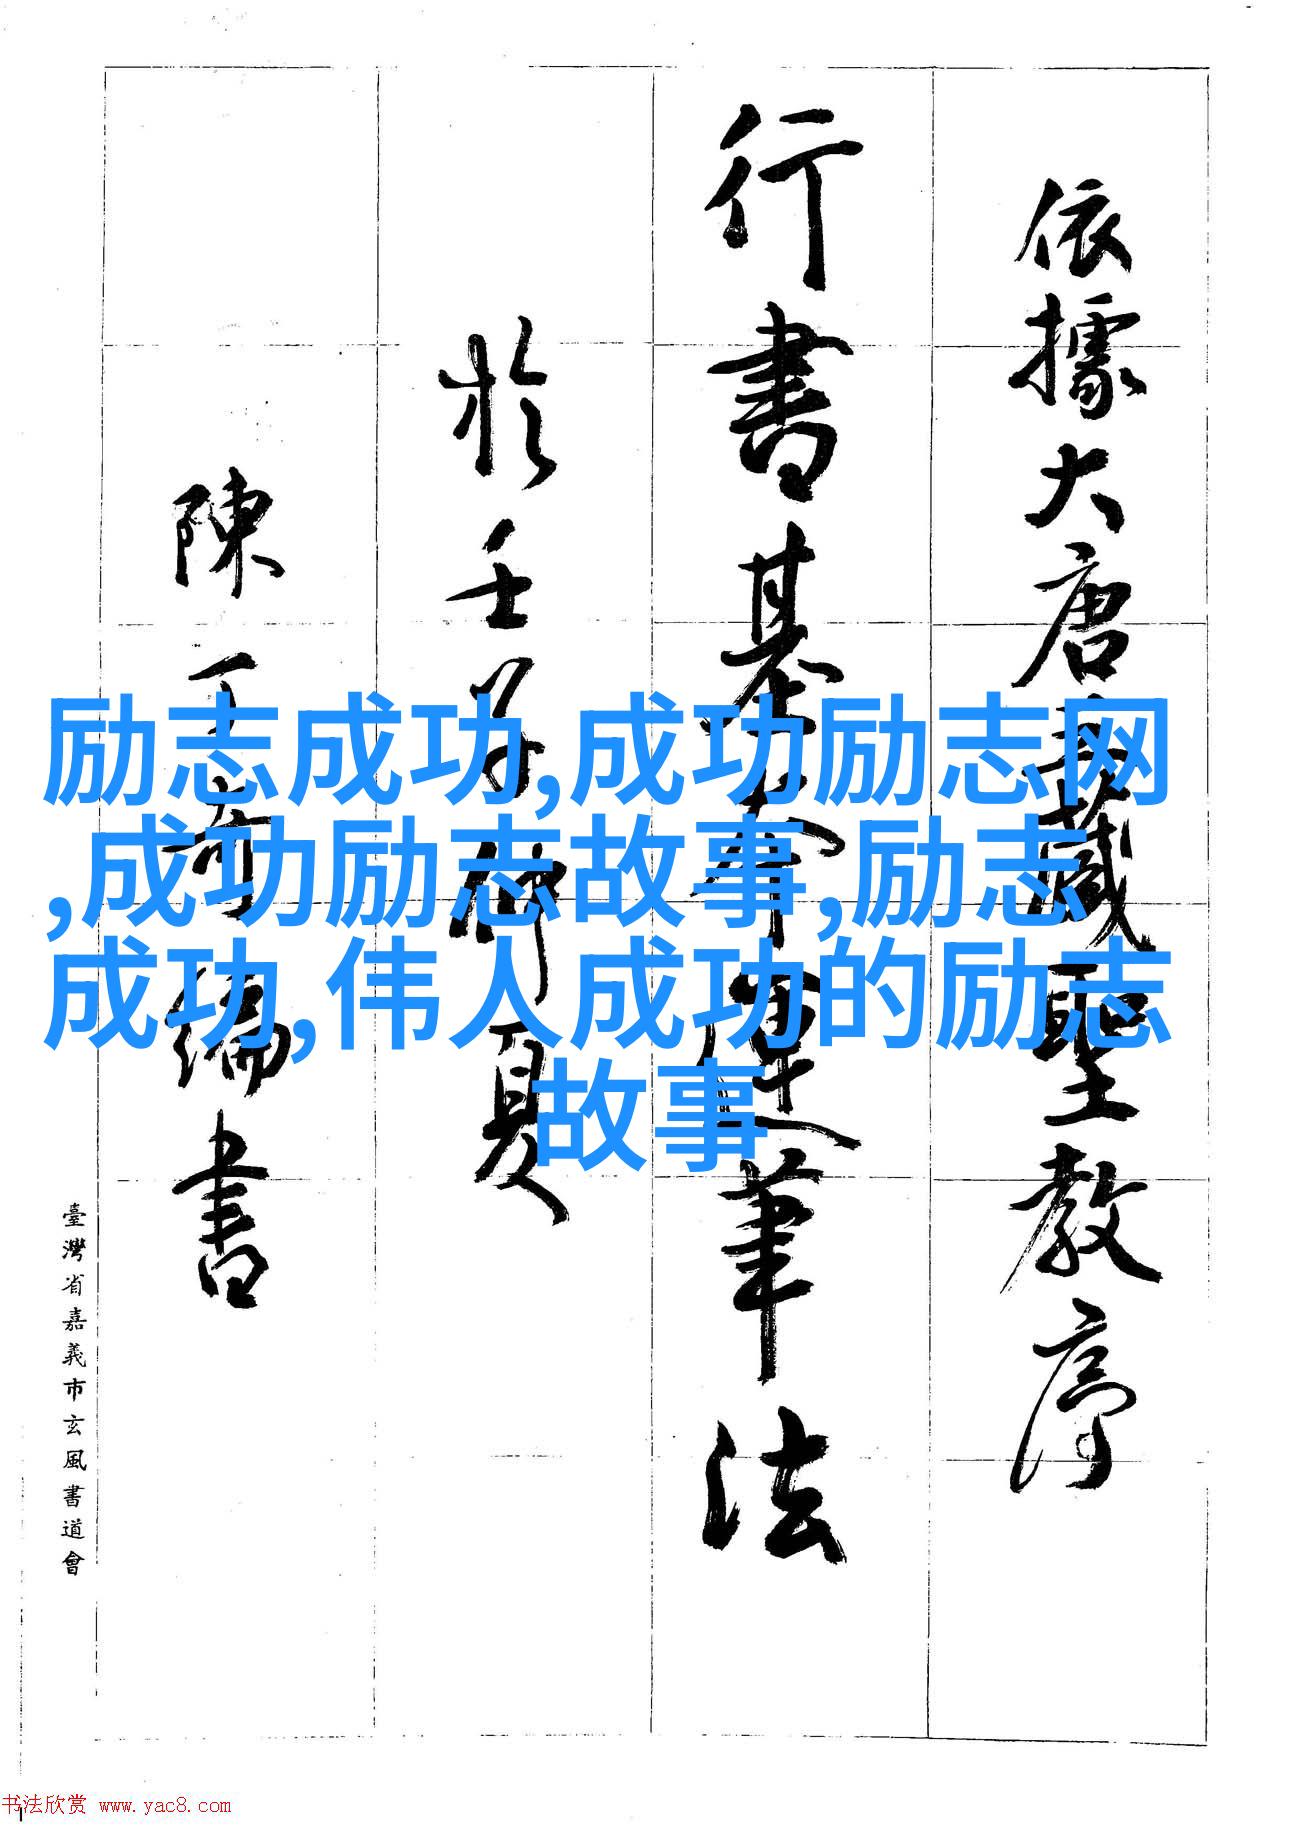 依據大唐三藏聖教序
行書基本運筆法
於壬子仲夏
陳丁奇編書
臺灣省嘉義市玄風書道會
励志成功,成功励志网
,成功励志故事,励志
成功,伟人成功的励志
故事
书法欣赏 www.yac8.com
1